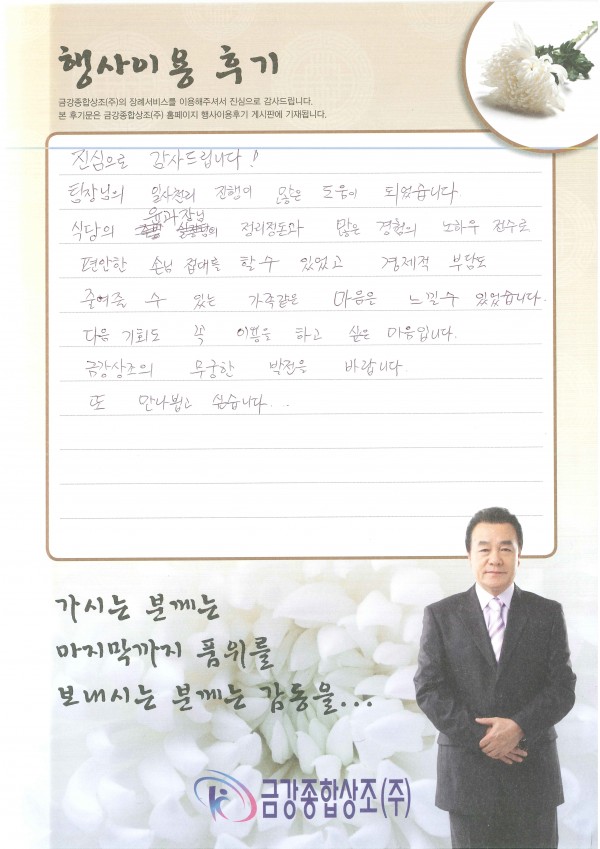 행사이용 후기
금강종합상조(주)의 장례서비스를 이용해주셔서 진심으로 감사드립니다.
본 후기문은 금강종합상조(주) 홈페이지 행사이용후기 게시판에 기재됩니다.
진심으로 감사드립니다!
팀장님의 일사천리 진행이 많은 도움이 되었습니다.
윤과장님
식당의 정리정돈과 많은 경험의 노하우 전수로
편안한 손님 접대를 할 수 있었고 경제적 부담도
줄여줄 수 있는 가족같은 마음은 느낄수 있었습니다.
다음 기회도 꼭 이용을 하고 싶은 마음입니다.
금강상조의 무궁한 박전을 바랍니다.
또 만나뵙고 싶습니다...
가시는 분께는
마지막까지 품위를
보내시는 분께는 감동을...
금강종합상조(주)